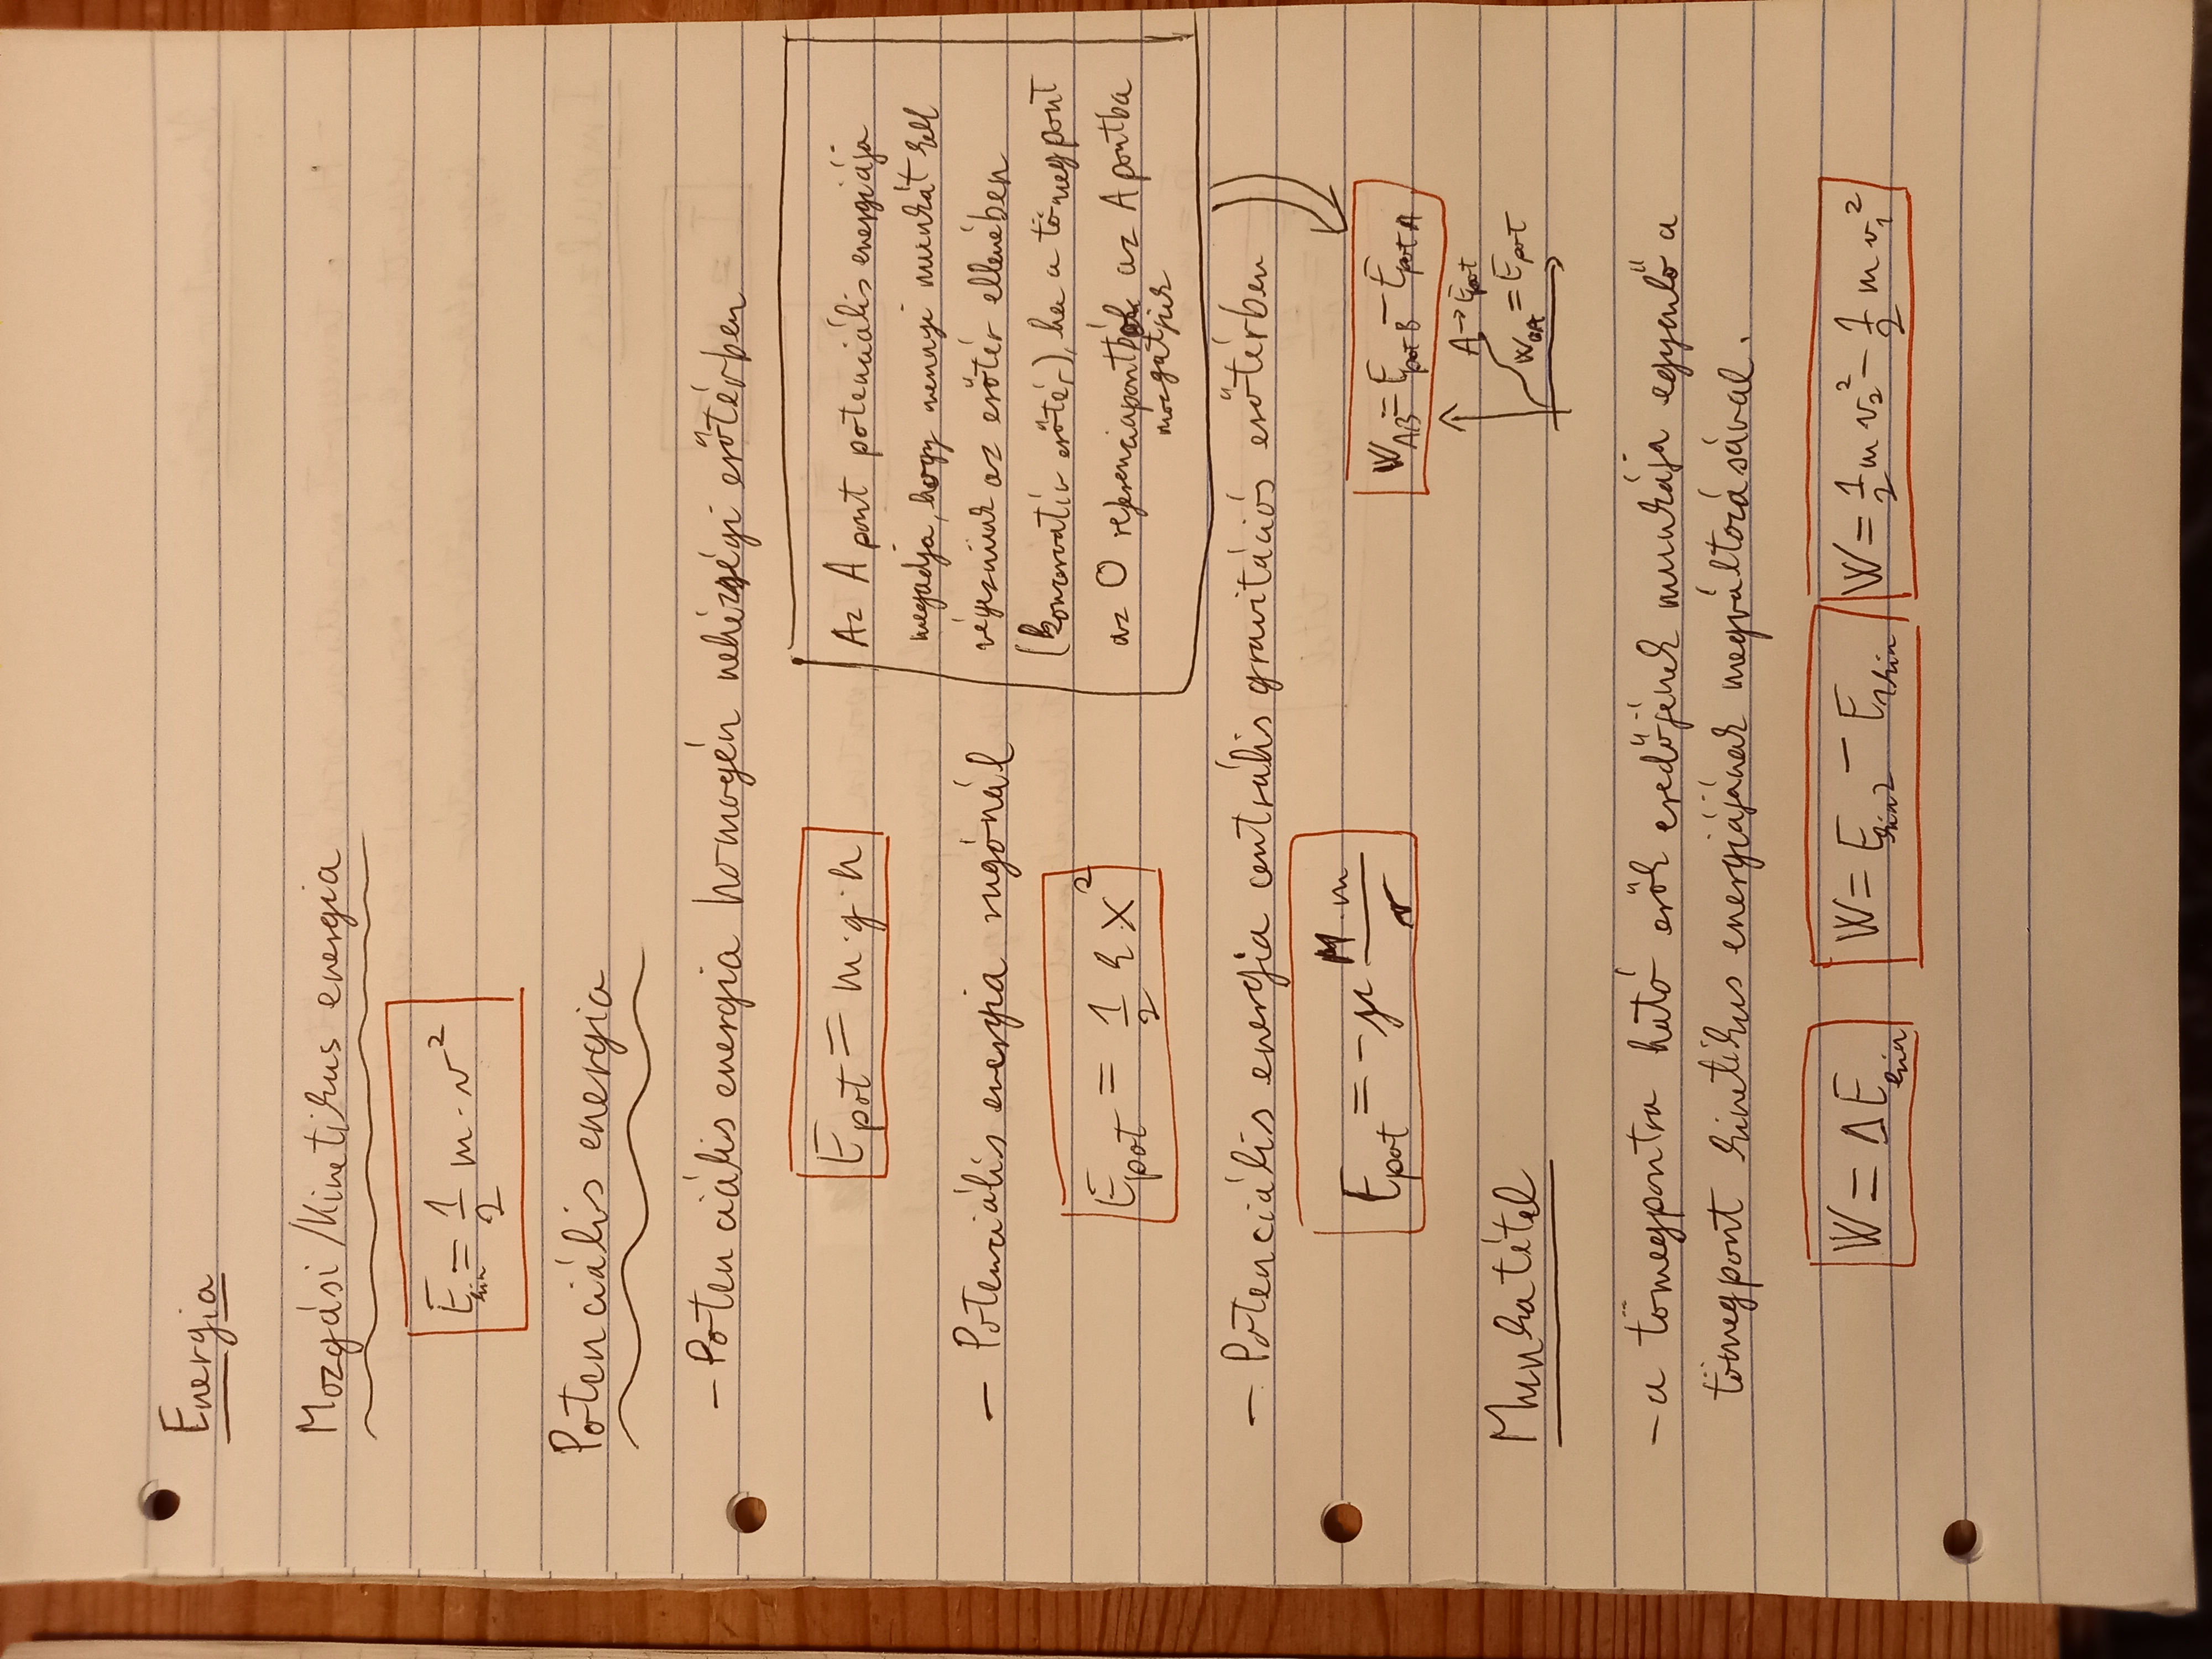 Energia
Mozgási/Kinetikus energia
E_kin = 1/2 m · v²
Potenciális energia
– Potenciális energia homogén nehézségi erőtérben
E_pot = m·g·h
– Potenciális energia rugónál
E_pot = 1/2 k x²
Az A pont potenciális energiája
megadja, hogy mennyi munkát kell
végeznünk az erőtér ellenében
(konzervatív erőtér), ha a tömegpont
az O referenciapontból az A pontba
mozgatjuk
– Potenciális energia centrális gravitációs erőtérben
E_pot = -μ M·m/r
W_AB = E_potB - E_potA
A → E_pot
W_OA = E_pot
Munkatétel
– a tömegpontra ható erők eredőjének munkája egyenlő a
tömegpont kinetikus energiájának megváltozásával.
W = ΔE_kin
W = E_kin2 - E_1kin
W = 1/2 m v₂² - 1/2 m v₁²